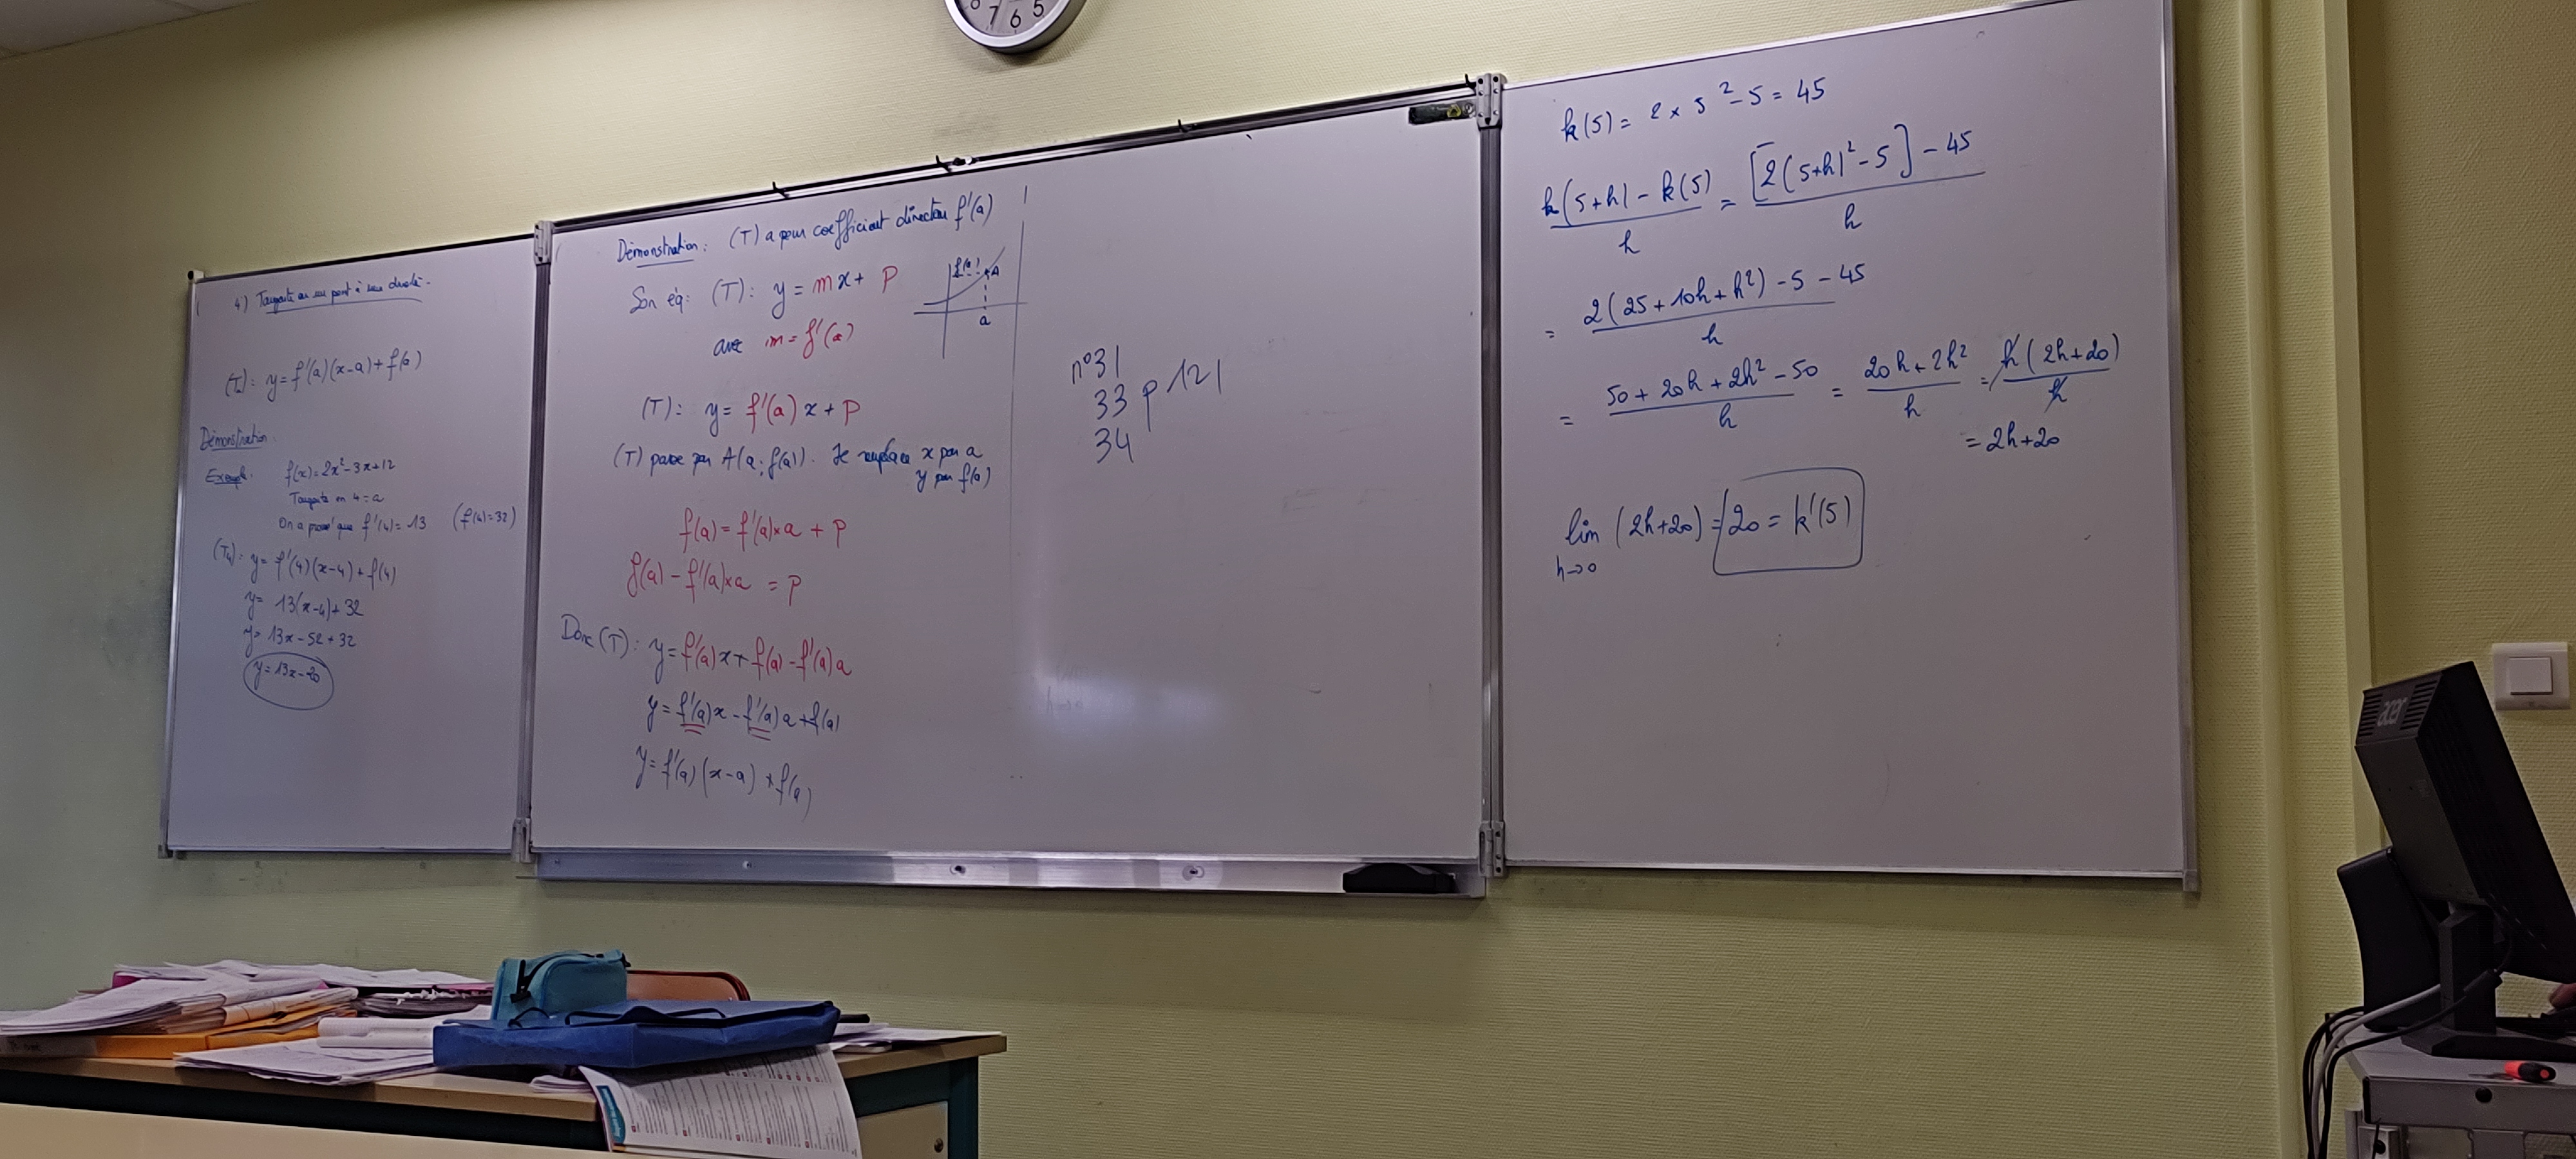 4) Tangente en un point à une droite.
(Ta): y = f'(a)(x-a) + f(a)
Démonstration.
Exemple: f(x) = 2x² - 3x + 12
Tangente en 4 = a
On a prouvé que f'(4) = 13 (f(4) = 32)
(T4): y = f'(4)(x-4) + f(4)
y = 13(x-4) + 32
y = 13x - 52 + 32
y = 13x - 20
Démonstration: (T) a pour coefficient directeur f'(a)
Son éq: (T): y = mx + p
avec m = f'(a)
f(a) A
a
(T): y = f'(a) x + p
(T) passe par A(a; f(a)). Je remplace x par a
y par f(a)
f(a) = f'(a)×a + p
f(a) - f'(a)×a = p
Donc (T): y = f'(a)x + f(a) - f'(a)a
y = f'(a)x - f'(a)a + f(a)
y = f'(a)(x-a) + f(a)
n°31
33 p 121
34
k(5) = 2 × 5² - 5 = 45
k(5+h) - k(5) / h = [2(5+h)² - 5] - 45 / h
= 2(25 + 10h + h²) - 5 - 45 / h
= 50 + 20h + 2h² - 50 / h = 20h + 2h² / h = h(2h+20) / h
= 2h+20
lim (2h+20) = 20 = k'(5)
h→0
7 6 5
acer